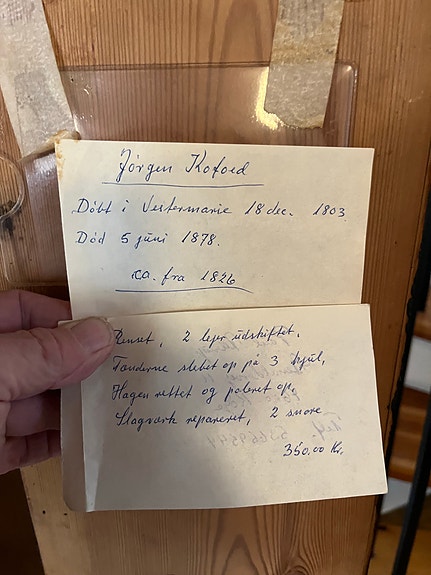 Jörgen Kofoed
Döbt i Vestermarie 18 dec. 1803.
Död 5 juni 1878.
ca. fra 1826
Renset, 2 lejer udskiftet.
Tanderne slebet op på 3 hjul,
Hagen rettet og poleret op.
Slagværk repareret, 2 snore
350.00 Kr.